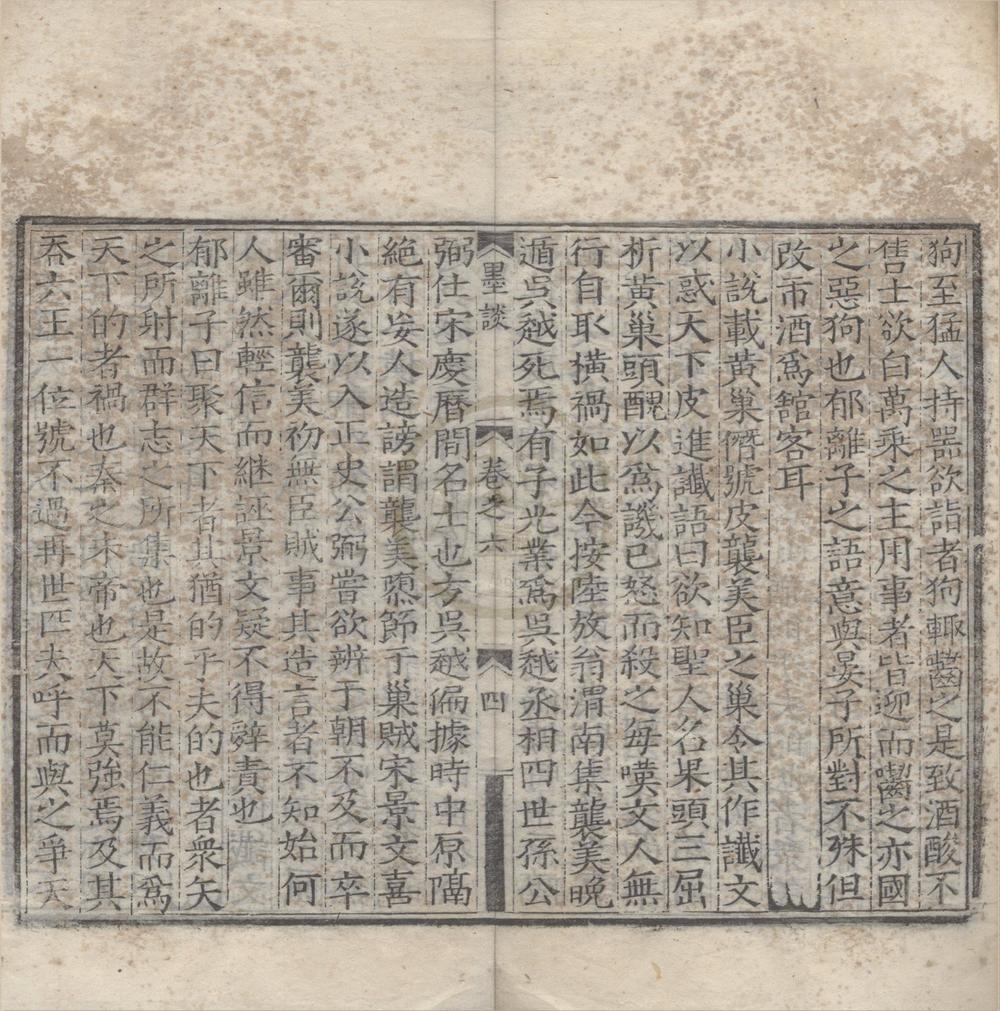 狗至猛人持噐欲詣者狗輙齧之是致酒酸不
售士欲白萬乘之主用事者皆迎而齧之亦國
之惡狗也郁離子之語意與晏子所對不殊但
改市酒爲舘客耳
小說載黃巢僭號皮襲美臣之巢令其作讖文
以惑天下皮進讖語曰欲知聖人名果頭三屈
析黃巢頭醜以爲譏已怒而殺之每嘆文人無
行自取橫禍如此今按陸放翁渭南集襲美晚
遁吳越死焉有子光業爲吳越丞相四世孫公
墨談
卷之六
四
弼仕宋慶曆間名士也方吳越偏據時中原隔
絶有妄人造謗謂襲美隳節于巢賊宋景文喜
小說遂以入正史公弼嘗欲辨于朝不及而卒
審爾則襲美初無臣賊事其造言者不知始何
人雖然輕信而継誣景文疑不得辭責也
郁離子曰聚天下者其猶的乎夫的也者衆矢
之所射而群志之所集也是故不能仁義而爲
天下的者禍也秦之未帝也天下莫強焉及其
吞六王一位號不過再世匹夫呼而與之爭天